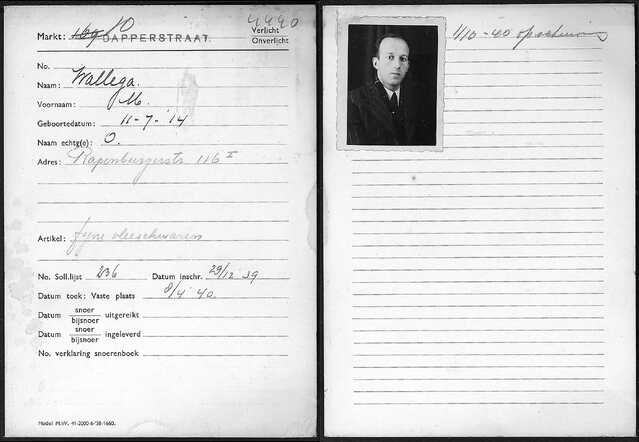 4490
Markt: 169 10 DAPPERSTRAAT.
Verlicht
Onverlicht
No.
Naam: Wallega.
Voornaam: M.
Geboortedatum: 11-7-'14
Naam echtg(e): O.
Adres: Rapenburgerstr 116 I
Artikel: fijne vleeschwaren
No. Soll.lijst 236 Datum inschr. 29/12 39
Datum toek: Vaste plaats 8/4 '40.
Datum snoer/bijsnoer uitgereikt
Datum snoer/bijsnoer ingeleverd
No. verklaring snoerenboek
Model M.W. 41-2000-6-'38-1660.
1/10-40